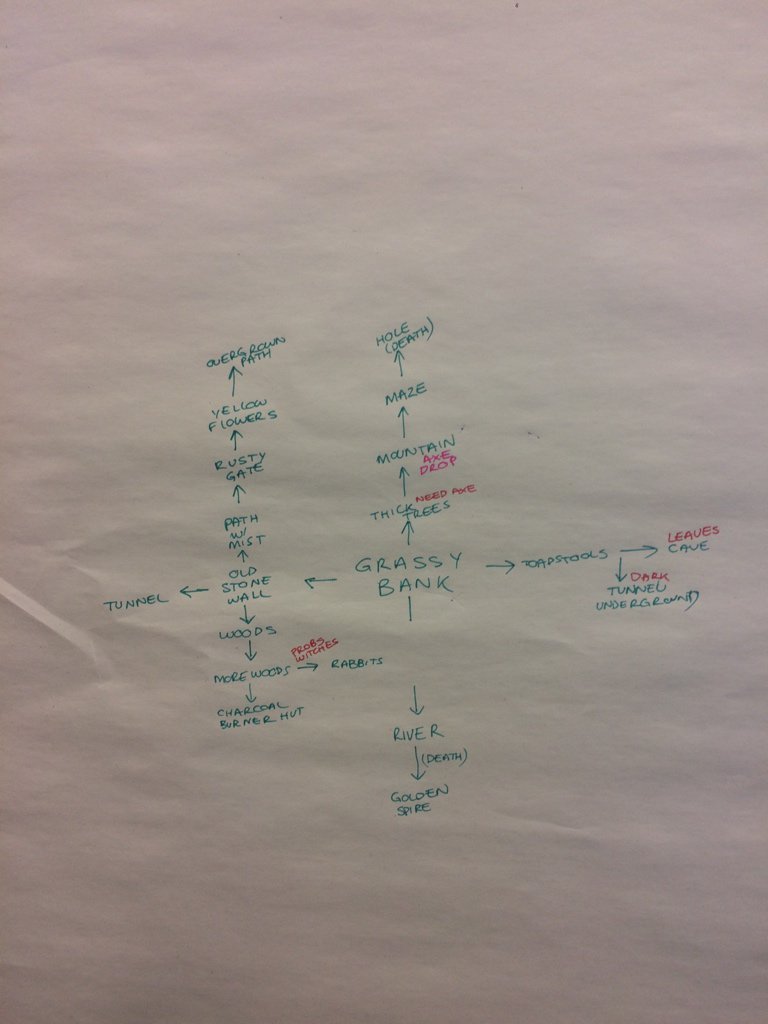 HOLE
(DEATH)
OVERGROWN
PATH
MAZE
YELLOW
FLOWERS
MOUNTAIN
AXE
DROP
RUSTY
GATE
NEED AXE
THICK
TREES
PATH
W/
MIST
GRASSY
BANK
TOADSTOOLS
LEAVES
CAVE
DARK
TUNNEL
UNDERGROUND
OLD
STONE
WALL
TUNNEL
WOODS
PROBS
WITCHES
MORE WOODS
RABBITS
CHARCOAL
BURNER HUT
RIVER
(DEATH)
GOLDEN
SPIRE